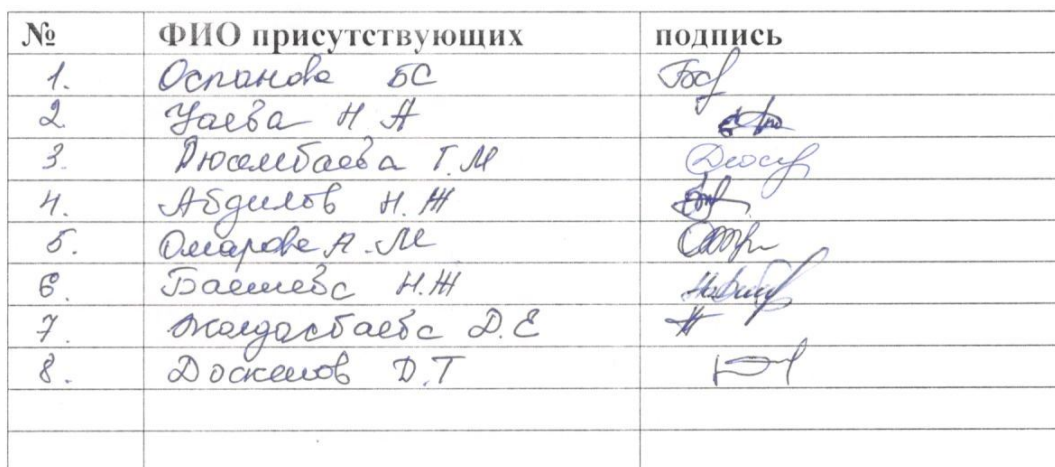 № ФИО присутствующих подпись
1. Оспанова БС
2 Уаева Н А
3. Дюсембаева Г.М
4. Абдилов Н.Ж
5. Омарова А.М
6. Баешева Н.Ж
7 Жолдасбаева Д.Е
8. Доскенов Д.Т